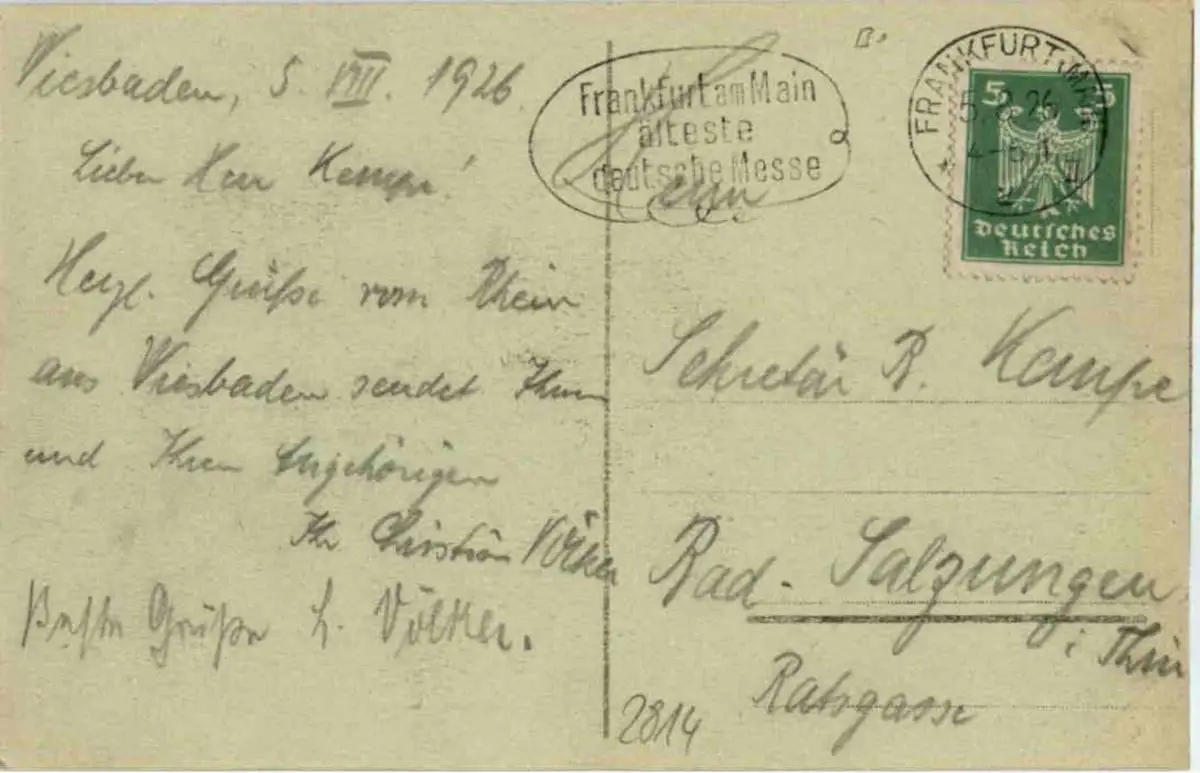 Wiesbaden, 5. VIII. 1926.
Lieber Herr Kempe!
Herzl. Grüße vom Rhein
aus Wiesbaden sendet Ihnen
und Ihren Angehörigen
Ihr Christian Völker
Beste Grüße L. Völker.
Frankfurt am Main
älteste
deutsche Messe
FRANKFURT (MAIN)
5.8.26
5 5
Deutsches
Reich
Herrn
Sekretär R. Kempe
Bad-Salzungen
i. Thür
Ratsgasse
2814